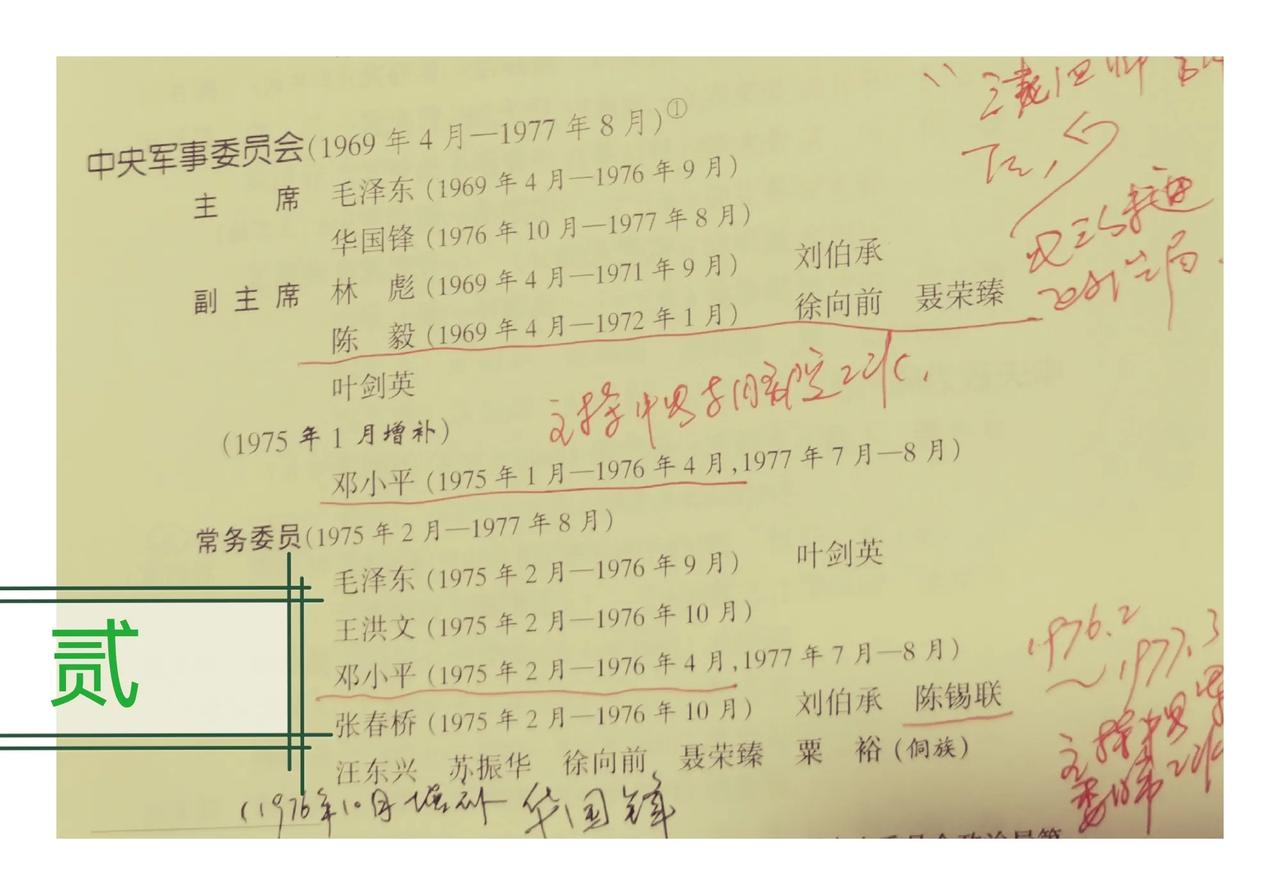 中央军事委员会(1969年4月—1977年8月)①
主 席 毛泽东(1969年4月—1976年9月)
华国锋(1976年10月—1977年8月)
副主席 林 彪(1969年4月—1971年9月) 刘伯承
陈 毅(1969年4月—1972年1月) 徐向前 聂荣臻
叶剑英
(1975年1月增补)
邓小平(1975年1月—1976年4月,1977年7月—8月)
常务委员(1975年2月—1977年8月)
毛泽东(1975年2月—1976年9月) 叶剑英
王洪文(1975年2月—1976年10月)
邓小平(1975年2月—1976年4月,1977年7月—8月)
张春桥(1975年2月—1976年10月) 刘伯承 陈锡联
汪东兴 苏振华 徐向前 聂荣臻 粟 裕(侗族)
(1976年10月增补 华国锋
1976.2
~1977.3
主持中央军
委日常工作
贰